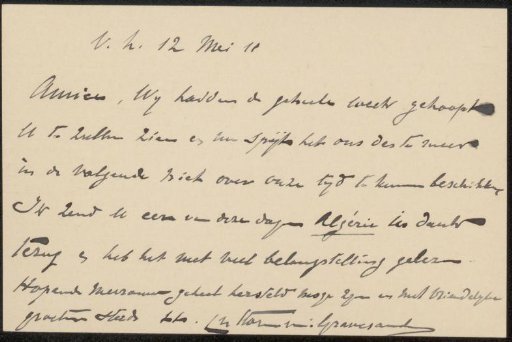 V. h. 12 Mei 11
Amice, Wij hadden de geheele week gehoopt
U te zullen zien en nu spijt het ons des te meer
in de volgende niet over onze tijd te kunnen beschikken
Ik zend U een van deze dagen Algérie in dank
terug en heb het met veel belangstelling gelezen
Hopende mevrouw geheel hersteld moge zijn en met vriendelijke
groeten steeds Storm van 'sGravesande